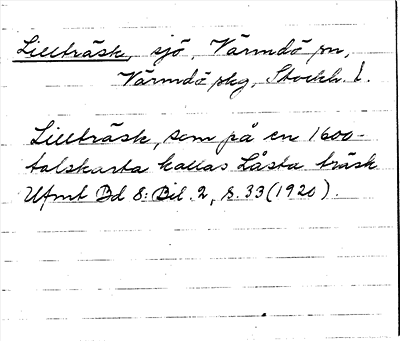 Lillträsk, sjö, Värmdö sn,
Värmdö skg, Stockh. l.
Lillträsk, som på en 1600-
talskarta kallas Låsta träsk
Ufmt Bd 8: Bil. 2, s. 33 (1920).